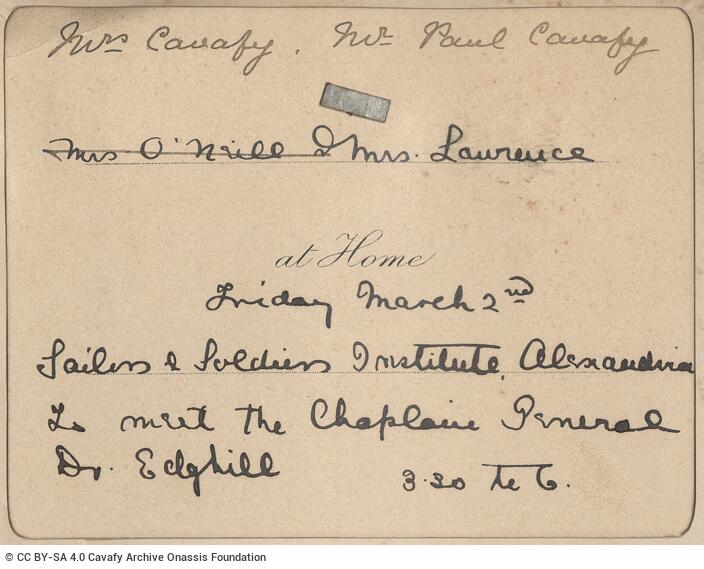 Mrs Cavafy. Mr Paul Cavafy
Mrs. O'Neill & Mrs. Lawrence
at Home
Friday March 2nd
Sailors & Soldiers Institute, Alexandria
To meet the Chaplain General
Dr. Edghill
3.30 to 6.
© CC BY-SA 4.0 Cavafy Archive Onassis Foundation